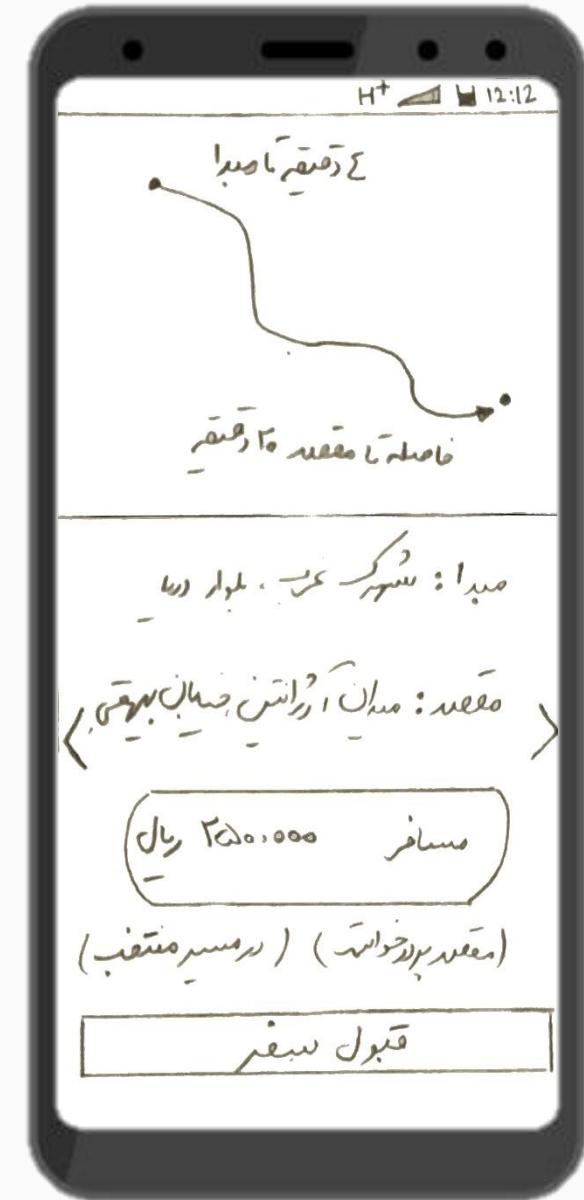 H+ 12:12
٤ دقیقه تا مبدا
فاصله تا مقصد ۲۰ دقیقه
مبدا : شهرک غرب ، بلوار دریا
مقصد : میدان آرژانتین خیابان بیهقی
مسافر ۲۵۰،۰۰۰ ریال
(مقصد پردرخواست) (در مسیر منتخب)
قبول سفر